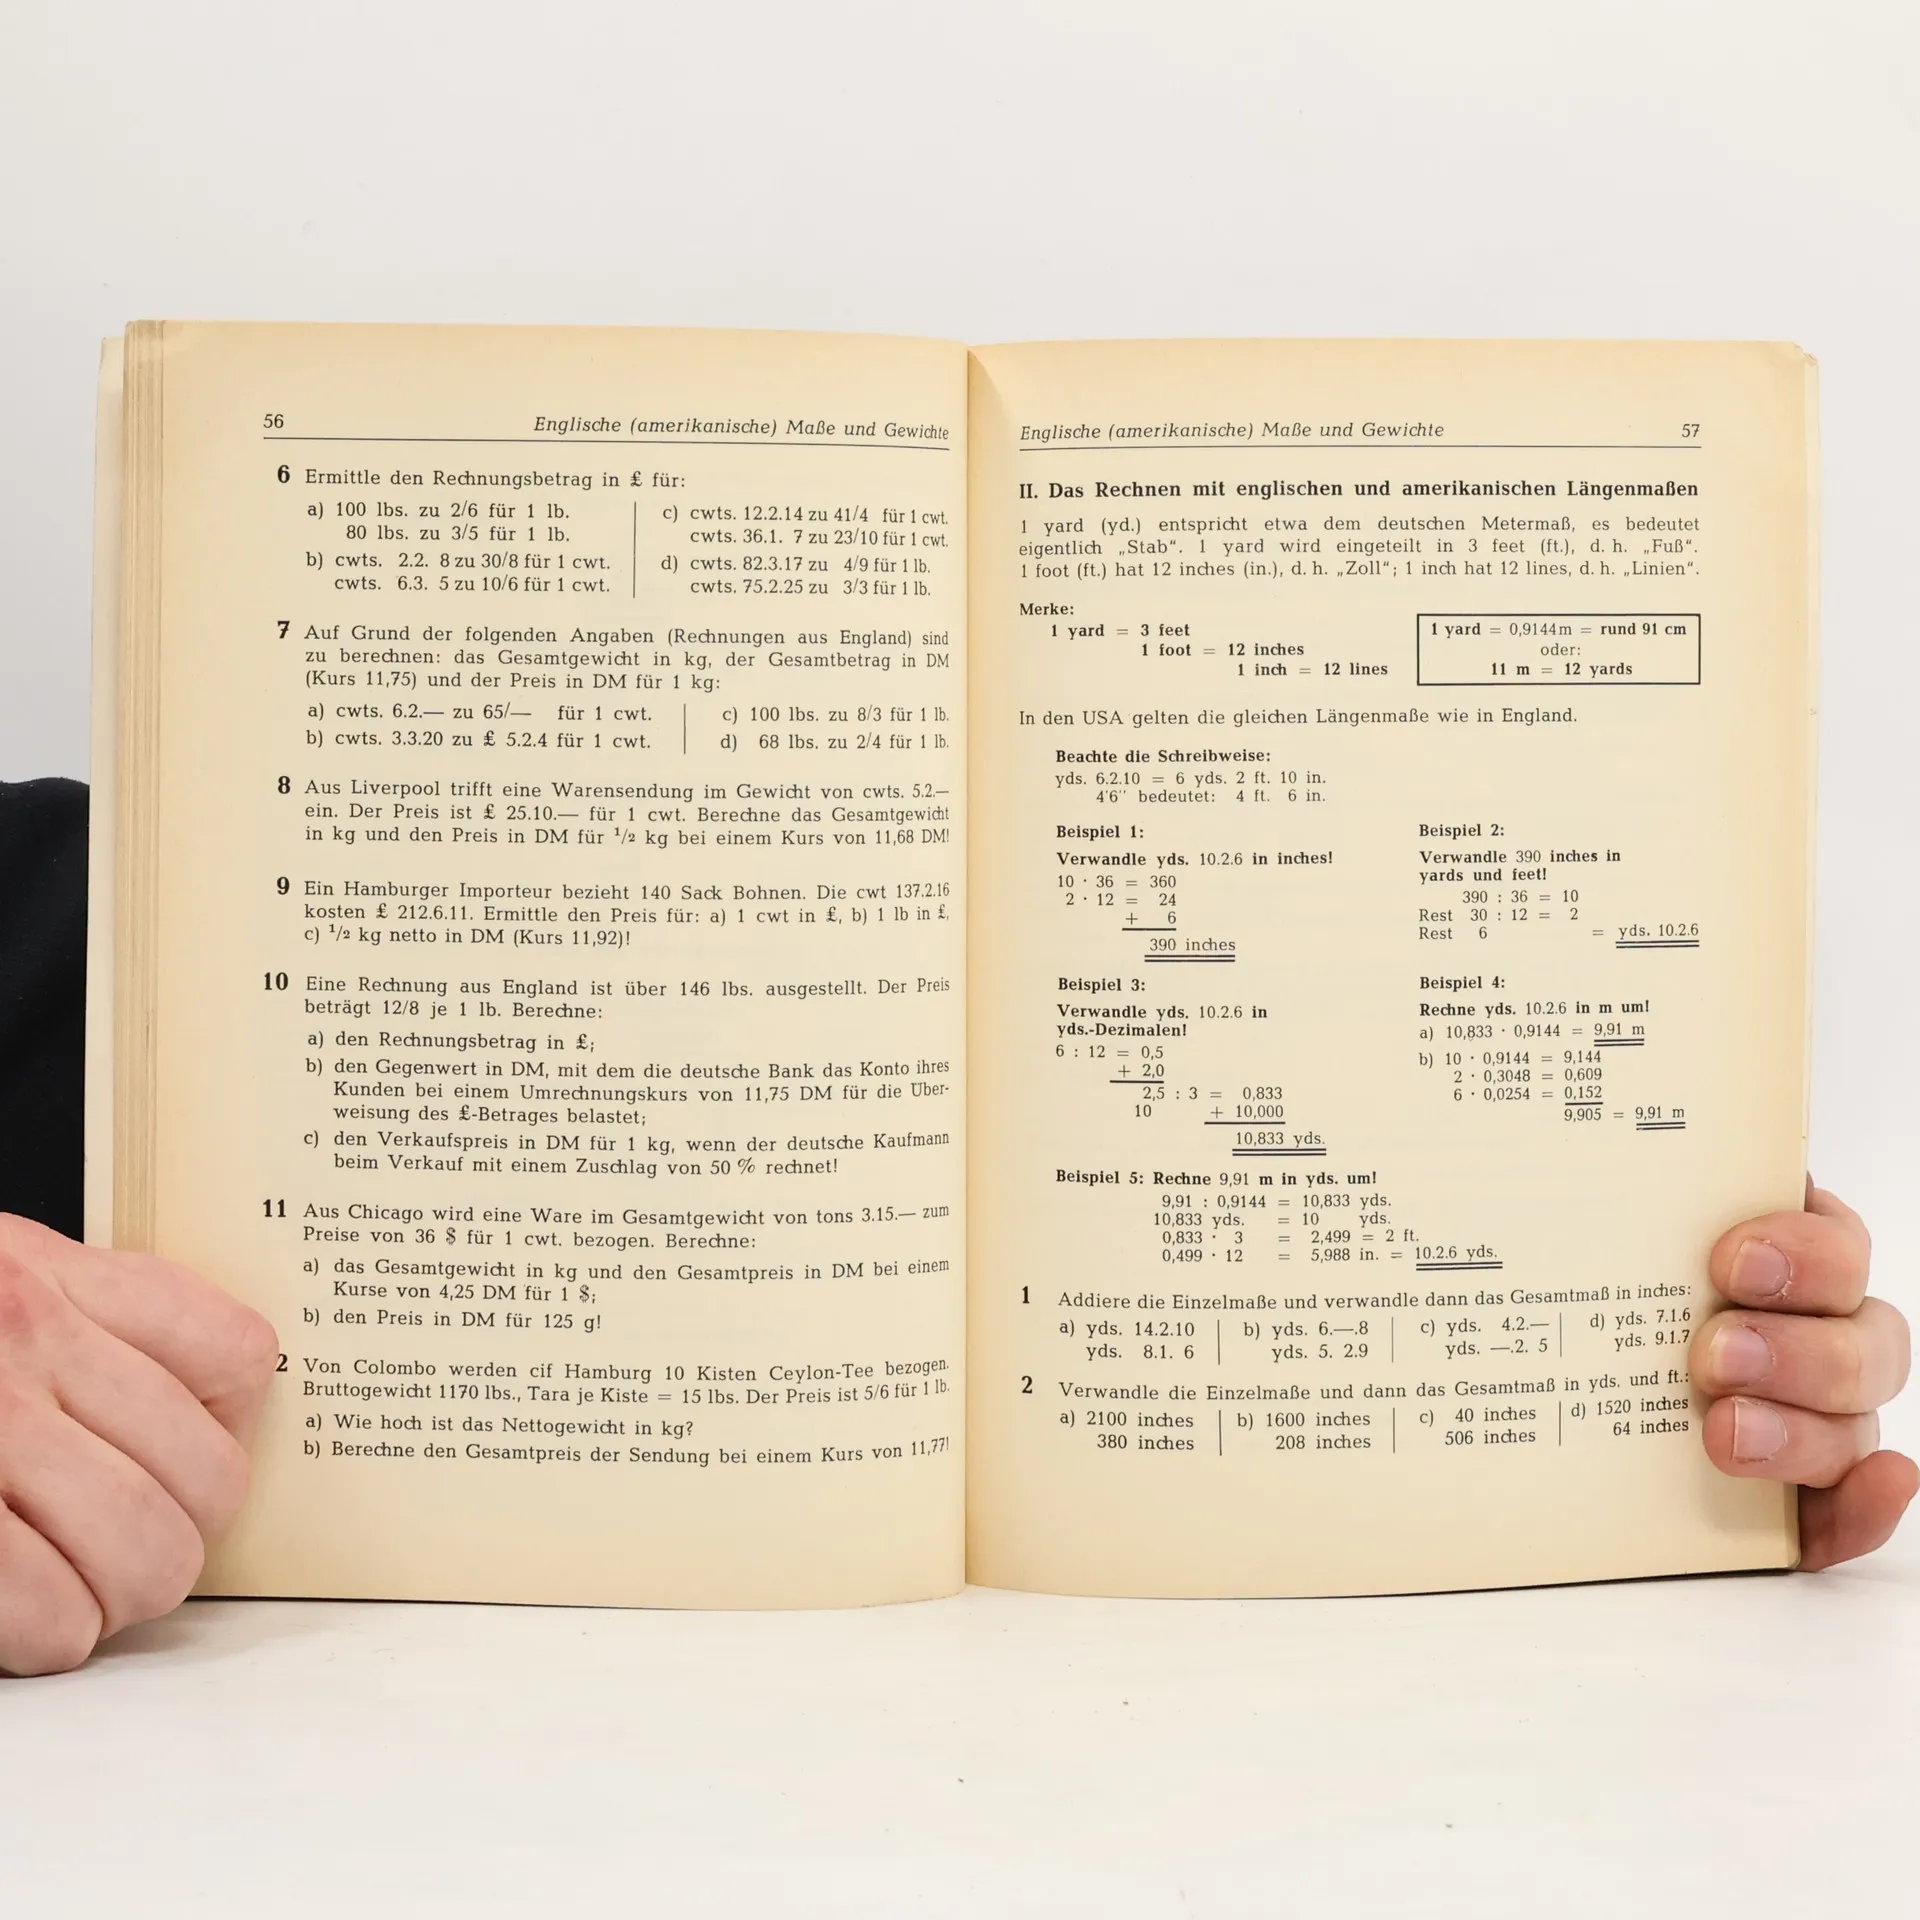 56 Englische (amerikanische) Maße und Gewichte
6 Ermittle den Rechnungsbetrag in £ für:
a) 100 lbs. zu 2/6 für 1 lb.
80 lbs. zu 3/5 für 1 lb.
b) cwts. 2.2. 8 zu 30/8 für 1 cwt.
cwts. 6.3. 5 zu 10/6 für 1 cwt.
c) cwts. 12.2.14 zu 41/4 für 1 cwt.
cwts. 36.1. 7 zu 23/10 für 1 cwt.
d) cwts. 82.3.17 zu 4/9 für 1 lb.
cwts. 75.2.25 zu 3/3 für 1 lb.
7 Auf Grund der folgenden Angaben (Rechnungen aus England) sind
zu berechnen: das Gesamtgewicht in kg, der Gesamtbetrag in DM
(Kurs 11,75) und der Preis in DM für 1 kg:
a) cwts. 6.2.— zu 65/— für 1 cwt.
b) cwts. 3.3.20 zu £ 5.2.4 für 1 cwt.
c) 100 lbs. zu 8/3 für 1 lb.
d) 68 lbs. zu 2/4 für 1 lb.
8 Aus Liverpool trifft eine Warensendung im Gewicht von cwts. 5.2.—
ein. Der Preis ist £ 25.10.— für 1 cwt. Berechne das Gesamtgewicht
in kg und den Preis in DM für ¹/₂ kg bei einem Kurs von 11,68 DM!
9 Ein Hamburger Importeur bezieht 140 Sack Bohnen. Die cwt 137.2.16
kosten £ 212.6.11. Ermittle den Preis für: a) 1 cwt in £, b) 1 lb in £,
c) ¹/₂ kg netto in DM (Kurs 11,92)!
10 Eine Rechnung aus England ist über 146 lbs. ausgestellt. Der Preis
beträgt 12/8 je 1 lb. Berechne:
a) den Rechnungsbetrag in £;
b) den Gegenwert in DM, mit dem die deutsche Bank das Konto ihres
Kunden bei einem Umrechnungskurs von 11,75 DM für die Über-
weisung des £-Betrages belastet;
c) den Verkaufspreis in DM für 1 kg, wenn der deutsche Kaufmann
beim Verkauf mit einem Zuschlag von 50 % rechnet!
11 Aus Chicago wird eine Ware im Gesamtgewicht von tons 3.15.— zum
Preise von 36 $ für 1 cwt. bezogen. Berechne:
a) das Gesamtgewicht in kg und den Gesamtpreis in DM bei einem
Kurse von 4,25 DM für 1 $;
b) den Preis in DM für 125 g!
2 Von Colombo werden cif Hamburg 10 Kisten Ceylon-Tee bezogen.
Bruttogewicht 1170 lbs., Tara je Kiste = 15 lbs. Der Preis ist 5/6 für 1 lb.
a) Wie hoch ist das Nettogewicht in kg?
b) Berechne den Gesamtpreis der Sendung bei einem Kurs von 11,77!
Englische (amerikanische) Maße und Gewichte 57
II. Das Rechnen mit englischen und amerikanischen Längenmaßen
1 yard (yd.) entspricht etwa dem deutschen Metermaß, es bedeutet
eigentlich „Stab“. 1 yard wird eingeteilt in 3 feet (ft.), d. h. „Fuß“.
1 foot (ft.) hat 12 inches (in.), d. h. „Zoll“; 1 inch hat 12 lines, d. h. „Linien“.
Merke:
1 yard = 3 feet
1 foot = 12 inches
1 inch = 12 lines
1 yard = 0,9144m = rund 91 cm
oder:
11 m = 12 yards
In den USA gelten die gleichen Längenmaße wie in England.
Beachte die Schreibweise:
yds. 6.2.10 = 6 yds. 2 ft. 10 in.
4'6'' bedeutet: 4 ft. 6 in.
Beispiel 1:
Verwandle yds. 10.2.6 in inches!
10 · 36 = 360
2 · 12 = 24
+ 6
390 inches
Beispiel 2:
Verwandle 390 inches in
yards und feet!
390 : 36 = 10
Rest 30 : 12 = 2
Rest 6 = yds. 10.2.6
Beispiel 3:
Verwandle yds. 10.2.6 in
yds.-Dezimalen!
6 : 12 = 0,5
+ 2,0
2,5 : 3 = 0,833
10 + 10,000
10,833 yds.
Beispiel 4:
Rechne yds. 10.2.6 in m um!
a) 10,833 · 0,9144 = 9,91 m
b) 10 · 0,9144 = 9,144
2 · 0,3048 = 0,609
6 · 0,0254 = 0,152
9,905 = 9,91 m
Beispiel 5: Rechne 9,91 m in yds. um!
9,91 : 0,9144 = 10,833 yds.
10,833 yds. = 10 yds.
0,833 · 3 = 2,499 = 2 ft.
0,499 · 12 = 5,988 in. = 10.2.6 yds.
1 Addiere die Einzelmaße und verwandle dann das Gesamtmaß in inches:
a) yds. 14.2.10
yds. 8.1. 6
b) yds. 6.—.8
yds. 5. 2.9
c) yds. 4.2.—
yds. —.2. 5
d) yds. 7.1.6
yds. 9.1.7
2 Verwandle die Einzelmaße und dann das Gesamtmaß in yds. und ft.:
a) 2100 inches
380 inches
b) 1600 inches
208 inches
c) 40 inches
506 inches
d) 1520 inches
64 inches